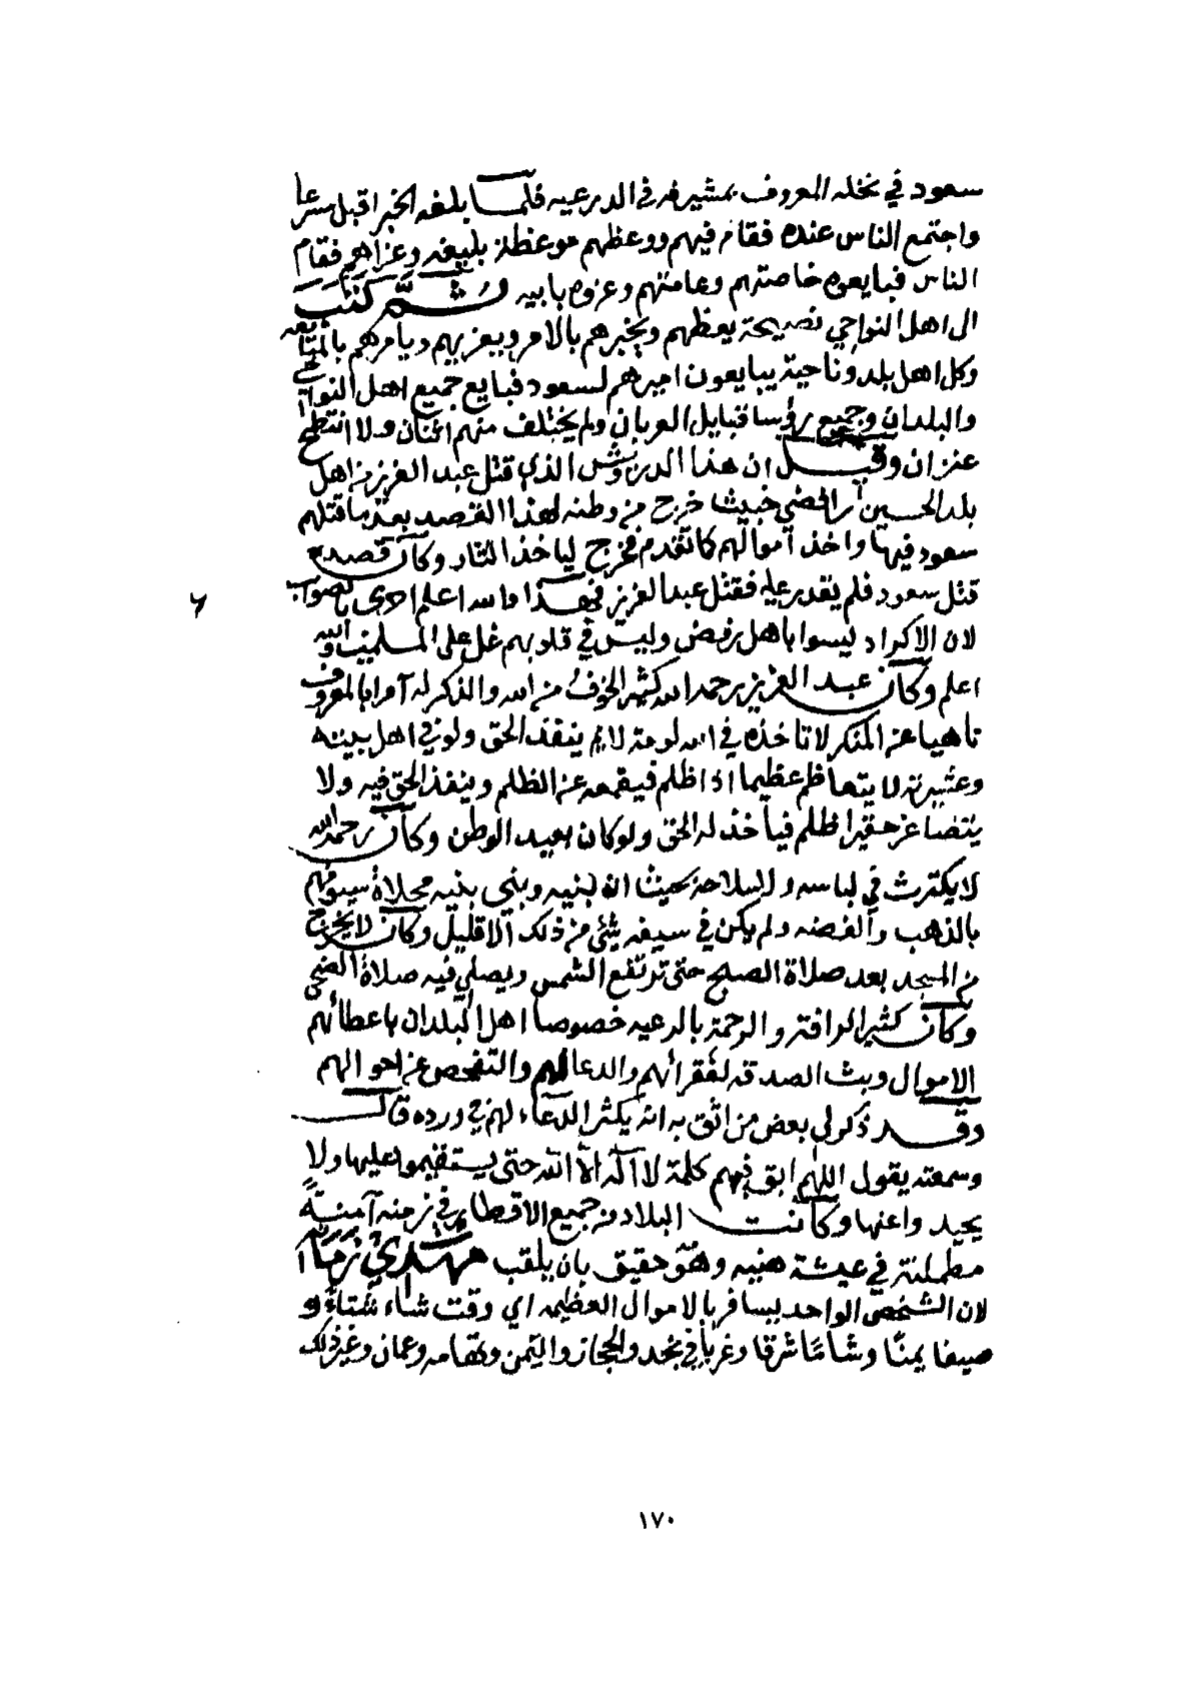 سعود في نخله المعروف بمشيرفه في الدرعيه فلما بلغه الخبر اقبل مسرعا
واجتمع الناس عنده فقام فيهم ووعظهم موعظة بليغه وعزاهم فقام
الناس فبايعوه خاصتهم وعامتهم وعزوه بابيه ثم كتب
الى اهل النواحي نصيحة يعظهم ويخبرهم بالامر ويعزيهم ويامرهم بالمتابعه
وكل اهل بلد وناحية يبايعون اميرهم لسعود فبايع جميع اهل النواحي
والبلدان وجميع رؤسا قبايل العربان ولم يختلف منهم اثنان ولا انتطح
عنزان وقيل ان هذا الدرويش الذي قتل عبد العزيز من اهل
بلد الحسين رافضي خبيث خرج من وطنه لهذا القصد بعد ما قتلهم
سعود فيها واخذ اموالهم كما تقدم فخرج لياخذ الثار وكان قصده
قتل سعود فلم يقدر عليه فقتل عبد العزيز فهذا والله اعلم احرى بالصواب
لان الاكراد ليسوا باهل رفض وليس في قلوبهم غل على المسلمين والله
اعلم وكان عبد العزيز رحمه الله كثير الخوف من الله والذكر له آمرا بالمعروف
ناهيا عن المنكر لا تاخذه في الله لومة لايم ينفذ الحق ولو في اهل بيته
وعشيرته لا يتعاظم عظيما اذا ظلم فيقمعه عن الظلم وينفذ الحق فيه ولا
يتصاغر حقيرا ظلم فيأخذ له الحق ولو كان بعيد الوطن وكان رحمه الله
لا يكترث في لباسه ولا سلاحه بحيث ان بنيه وبني بنيه محلاة سيوفهم
بالذهب والفضه ولم يكن في سيفه شيئ من ذلك الا قليل وكان لا يخرج
من المسجد بعد صلاة الصبح حتى ترتفع الشمس ويصلي فيه صلاة الضحى
وكان كثير الرافة والرحمة بالرعيه خصوصا اهل البلدان باعطائهم
الاموال وبث الصدقه لفقرائهم والدعا لهم والتفحص عن احوالهم
وقد ذكر لي بعض من اثق به انه يكثر الدعاء لهم في ورده قال
وسمعته يقول اللهم ابق فيهم كلمة لا اله الا الله حتى يستقيموا عليها ولا
يحيدوا عنها وكانت البلاد من جميع الاقطار في زمنه آمنة
مطمئنة في عيشة هنيه وهو حقيق بان يلقب مهدي زمانه
لان الشخص الواحد يسافر بالاموال العظيمه اي وقت شاء شتاء و
صيفا يمنا وشاما شرقا وغربا في نجد والحجاز واليمن وتهامه وعمان وغير ذلك
١٧٠